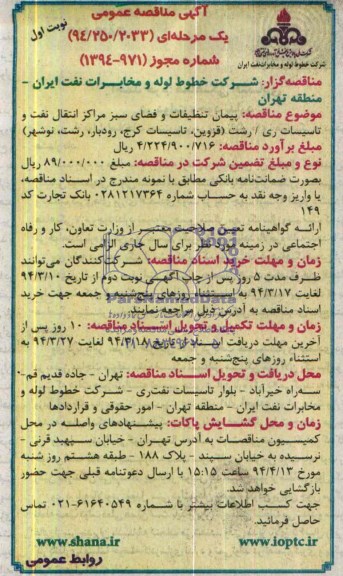 آگهی مناقصه عمومی
نوبت اول
یک مرحله‌ای (۹۴/۲۵۰/۲۰۳۳)
شرکت خطوط لوله و مخابرات نفت ایران
شماره مجوز (۹۷۱-۱۳۹۴)
مناقصه‌گزار: شرکت خطوط لوله و مخابرات نفت ایران –
منطقه تهران
موضوع مناقصه: پیمان تنظیفات و فضای سبز مراکز انتقال نفت و
تاسیسات ری / رشت (قزوین، تاسیسات کرج، رودبار، رشت، نوشهر)
مبلغ برآورد مناقصه: ۴/۲۲۴/۹۰۰/۷۱۶ ریال
نوع و مبلغ تضمین شرکت در مناقصه: مبلغ ۸۹/۰۰۰/۰۰۰ ریال
بصورت ضمانت‌نامه بانکی مطابق با نمونه مندرج در اسناد مناقصه،
یا واریز وجه نقد به حساب شماره ۰۲۸۱۲۱۷۳۶۴ بانک تجارت کد
۱۴۹
ارائه گواهینامه تعیین صلاحیت معتبر از وزارت تعاون، کار و رفاه
اجتماعی در زمینه مورد نظر برای سال جاری الزامی است.
زمان و مهلت خرید اسناد مناقصه: شرکت‌کنندگان می‌توانند
ظرف مدت ۵ روز پس از چاپ آگهی نوبت دوم از تاریخ ۹۴/۳/۱۰
لغایت ۹۴/۳/۱۷ به استثناء روزهای پنج‌شنبه و جمعه جهت خرید
اسناد مناقصه به آدرس ذیل مراجعه نمایند.
زمان و مهلت تکمیل و تحویل اسناد مناقصه: ۱۰ روز پس از
آخرین مهلت دریافت اسناد از تاریخ ۹۴/۳/۱۸ لغایت ۹۴/۳/۲۷ به
استثناء روزهای پنج‌شنبه و جمعه
محل دریافت و تحویل اسناد مناقصه: تهران - جاده قدیم قم-
سه‌راه خیرآباد - بلوار تاسیسات نفت‌ری - شرکت خطوط لوله و
مخابرات نفت ایران - منطقه تهران - امور حقوقی و قراردادها
زمان و محل گشایش پاکات: پیشنهادهای واصله در محل
کمیسیون مناقصات به آدرس تهران - خیابان سپهبد قرنی -
نرسیده به خیابان سپند - پلاک ۱۸۸ - طبقه هشتم روز شنبه
مورخ ۹۴/۴/۱۳ ساعت ۱۵:۱۵ با ارسال دعوتنامه قبلی جهت حضور
بازگشایی خواهد شد.
جهت کسب اطلاعات بیشتر با شماره ۶۱۶۴۰۵۴۹-۰۲۱ تماس
حاصل فرمائید.
www.shana.ir www.ioptc.ir
روابط عمومی